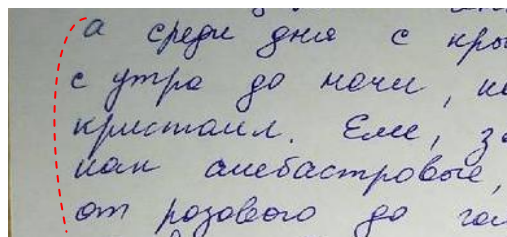 а среди дня с кры
с утра до ночи, не
кристалл. Еле, за
как алебастровые,
от розового до гол